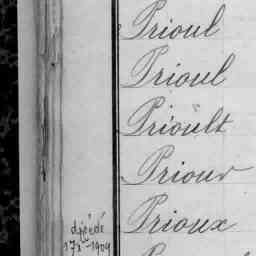 Prioul
Prioul
Prioult
Priour
décédé
Prioux
17 X 1909